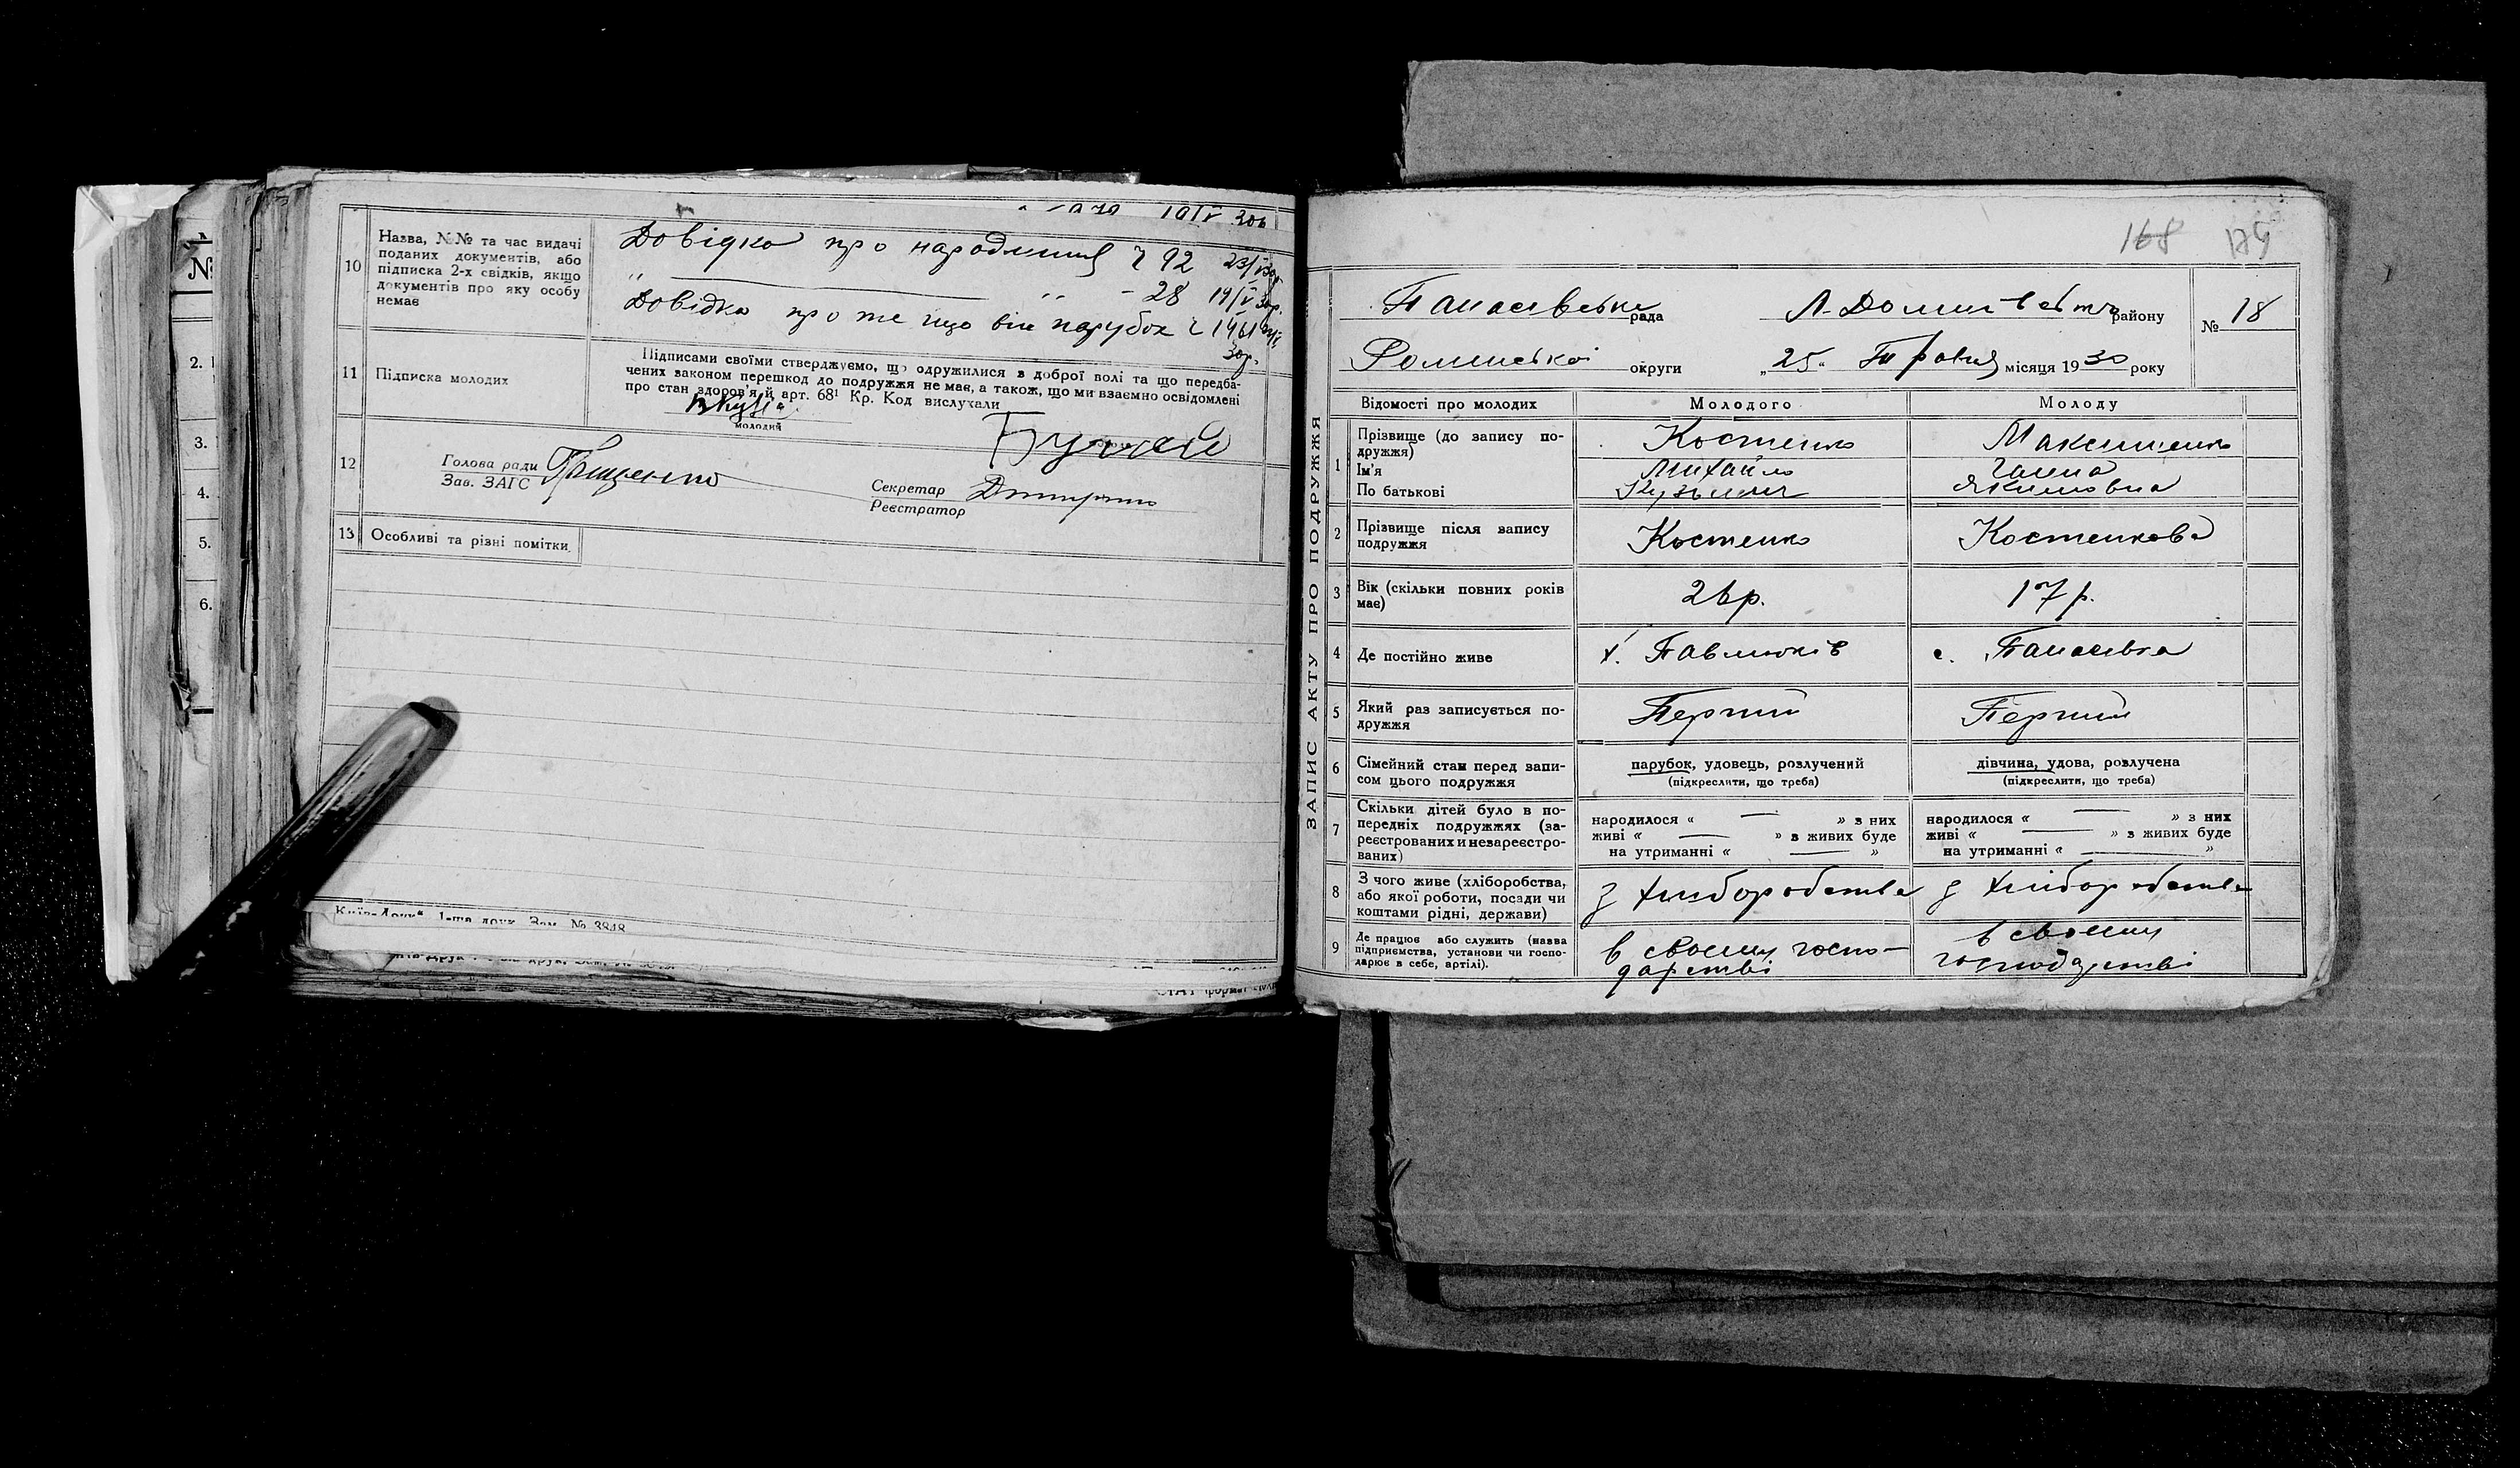 10
Назва, №№ та час видачі
поданих документів, або
підписка 2-х свідків, якщо
документів про яку особу
немає
Довідка про народження ч 92 23/V 30р.
„ „ - 28 19/V 30р.
Довідка про те що він парубок ч 1461
30р.
11
Підписка молодих
Підписами своїми стверджуємо, що одружилися в доброї волі та що передба-
чених законом перешкод до подружжя не має, а також, що ми взаємно освідомлені
про стан здоров'я й арт. 68¹ Кр. Код вислухали
молодий
12
Голова ради
Зав. ЗАГС
Секретар
Реєстратор
13
Особливі та різні помітки
Київ-Друк“ 1-ша друк. Зам. № 3848
№
2.
3.
4.
5.
6.
168
ЗАПИС АКТУ ПРО ПОДРУЖЖЯ
Панасівська рада Л-Долинського району
№ 18
Роменської округи „25“ Травня місяця 1930 року
Відомості про молодих Молодого Молоду
1
Прізвище (до запису по-
дружжя) Костенко Максименко
Ім'я Михайло Ганна
По батькові Кузьмич Якимовна
2
Прізвище після запису
подружжя Костенко Костенкова
3
Вік (скільки повних років
має) 26р. 17р.
4
Де постійно живе х. Павлюків с. Панасівка
5
Який раз записується по-
дружжя Перший Перший
6
Сімейний стан перед запи-
сом цього подружжя
парубок, удовець, розлучений дівчина, удова, розлучена
(підкреслити, що треба) (підкреслити, що треба)
7
Скільки дітей було в по-
передніх подружжях (за-
реєстрованих и незареєстро-
ваних)
народилося « — » з них народилося « — » з них
живі « — » з живих буде живі « — » з живих буде
на утриманні « — » на утриманні « — »
8
З чого живе (хліборобства,
або якої роботи, посади чи
коштами рідні, держави)
з хліборобства з хліборобства
9
Де працює або служить (назва
підприємства, установи чи госпо-
дарює в себе, артілі).
в своєму госпо-
дарстві
в своєму
господарстві